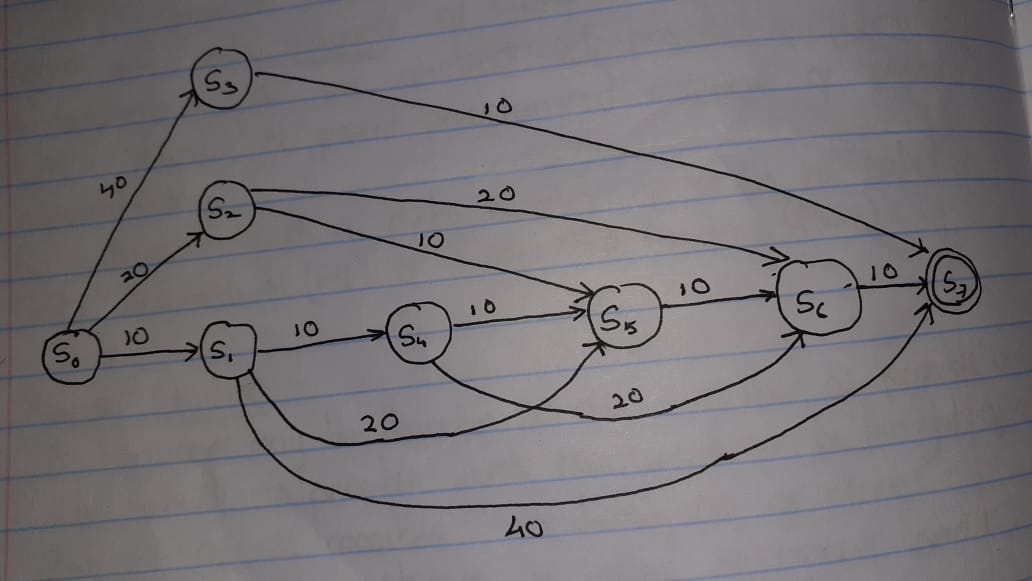 S3
10
40
S2
20
10
20
S7
10
10
S6
10
S5
10
S4
10
S1
10
S0
20
20
40